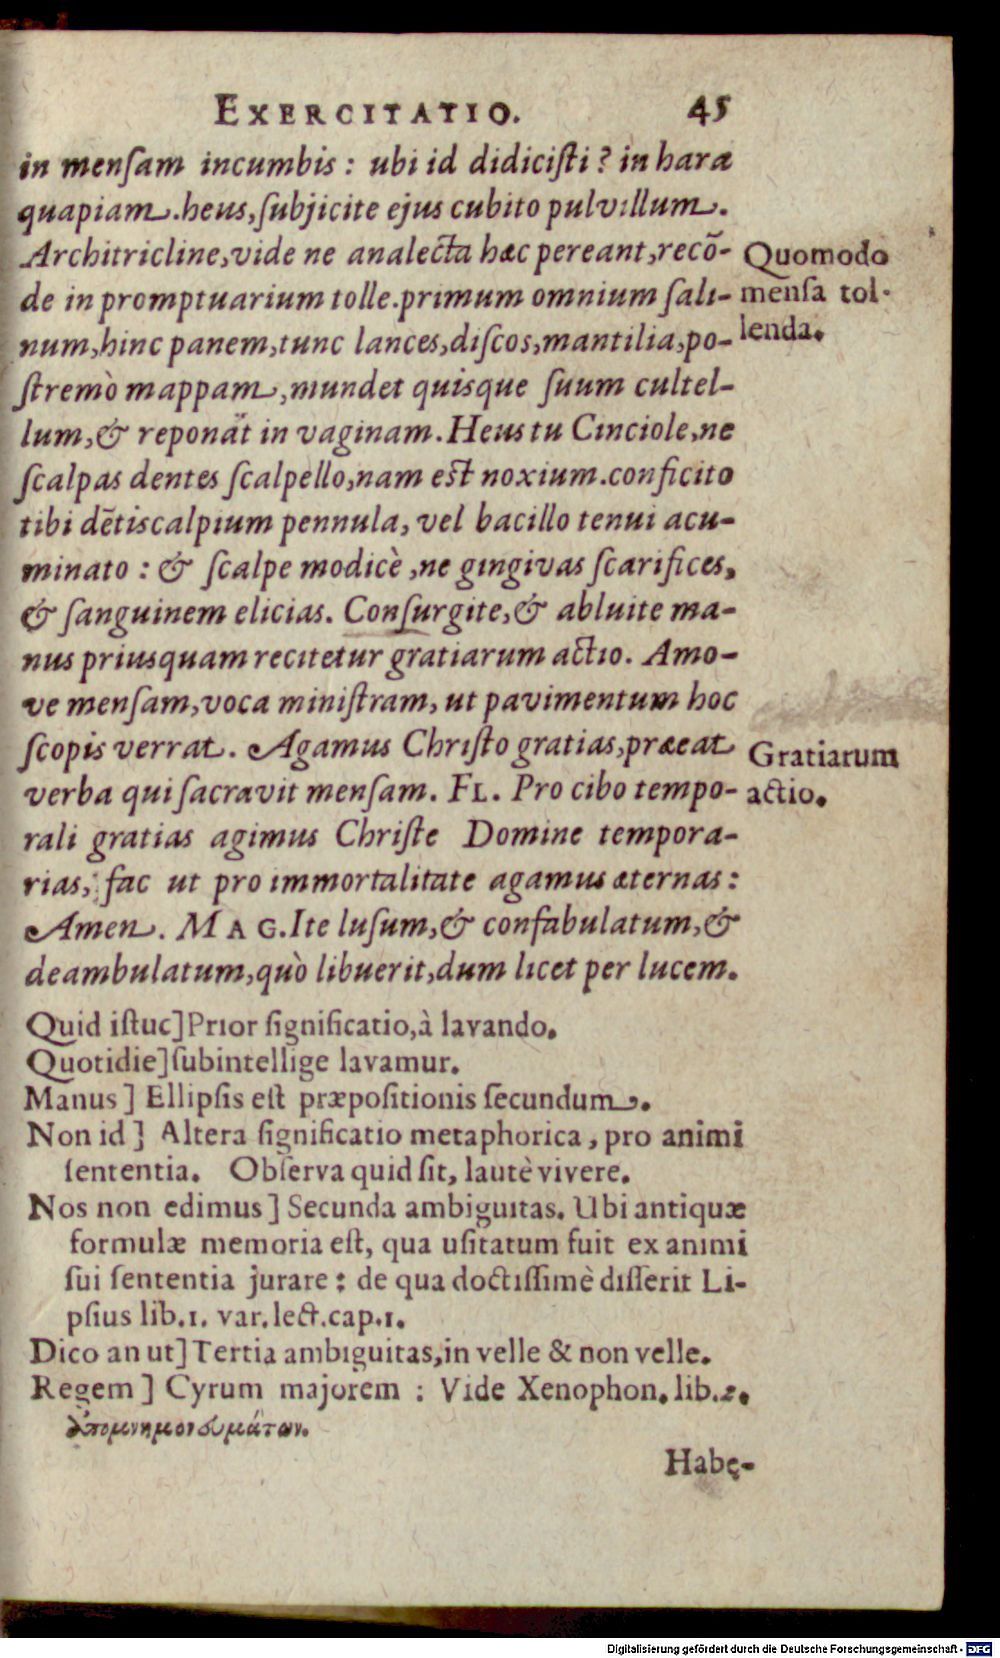 EXERCITATIO. 45
in menſam incumbis : ubi id didiciſti ? in hara
quapiam. heus, ſubjicite ejus cubito pulvillum.
Architricline, vide ne analecta hæc pereant, recõ-
de in promptuarium tolle. primum omnium ſali-
num, hinc panem, tunc lances, diſcos, mantilia, po-
ſtremò mappam, mundet quisque ſuum cultel-
lum, & reponãt in vaginam. Heus tu Cinciole, ne
ſcalpas dentes ſcalpello, nam est noxium. conficito
tibi dẽtiscalpium pennula, vel bacillo tenui acu-
minato : & ſcalpe modicè, ne gingivas ſcarifices,
& ſanguinem elicias. Conſurgite, & abluite ma-
nus priusquam recitetur gratiarum actio. Amo-
ve menſam, voca miniſtram, ut pavimentum hoc
ſcopis verrat. Agamus Chriſto gratias, præeat
verba qui ſacravit menſam. FL. Pro cibo tempo-
rali gratias agimus Chriſte Domine tempora-
rias, fac ut pro immortalitate agamus æternas :
Amen. MAG. Ite luſum, & confabulatum, &
deambulatum, quò libuerit, dum licet per lucem.
Quomodo
menſa tol-
lenda.
Gratiarum
actio.
Quid iſtuc] Prior ſignificatio, à lavando.
Quotidie] ſubintellige lavamur.
Manus ] Ellipſis eſt præpoſitionis ſecundum.
Non id ] Altera ſignificatio metaphorica, pro animi
ſententia. Obſerva quid ſit, lautè vivere.
Nos non edimus ] Secunda ambiguitas. Ubi antiquæ
formulæ memoria eſt, qua uſitatum fuit ex animi
ſui ſententia jurare : de qua doctiſſimè diſſerit Li-
pſius lib.1. var. lect. cap.1.
Dico an ut] Tertia ambiguitas, in velle & non velle.
Regem ] Cyrum majorem : Vide Xenophon. lib.2.
ἀπομνημονευμάτων.
Habę-
Digitalisierung gefördert durch die Deutsche Forschungsgemeinschaft - DFG